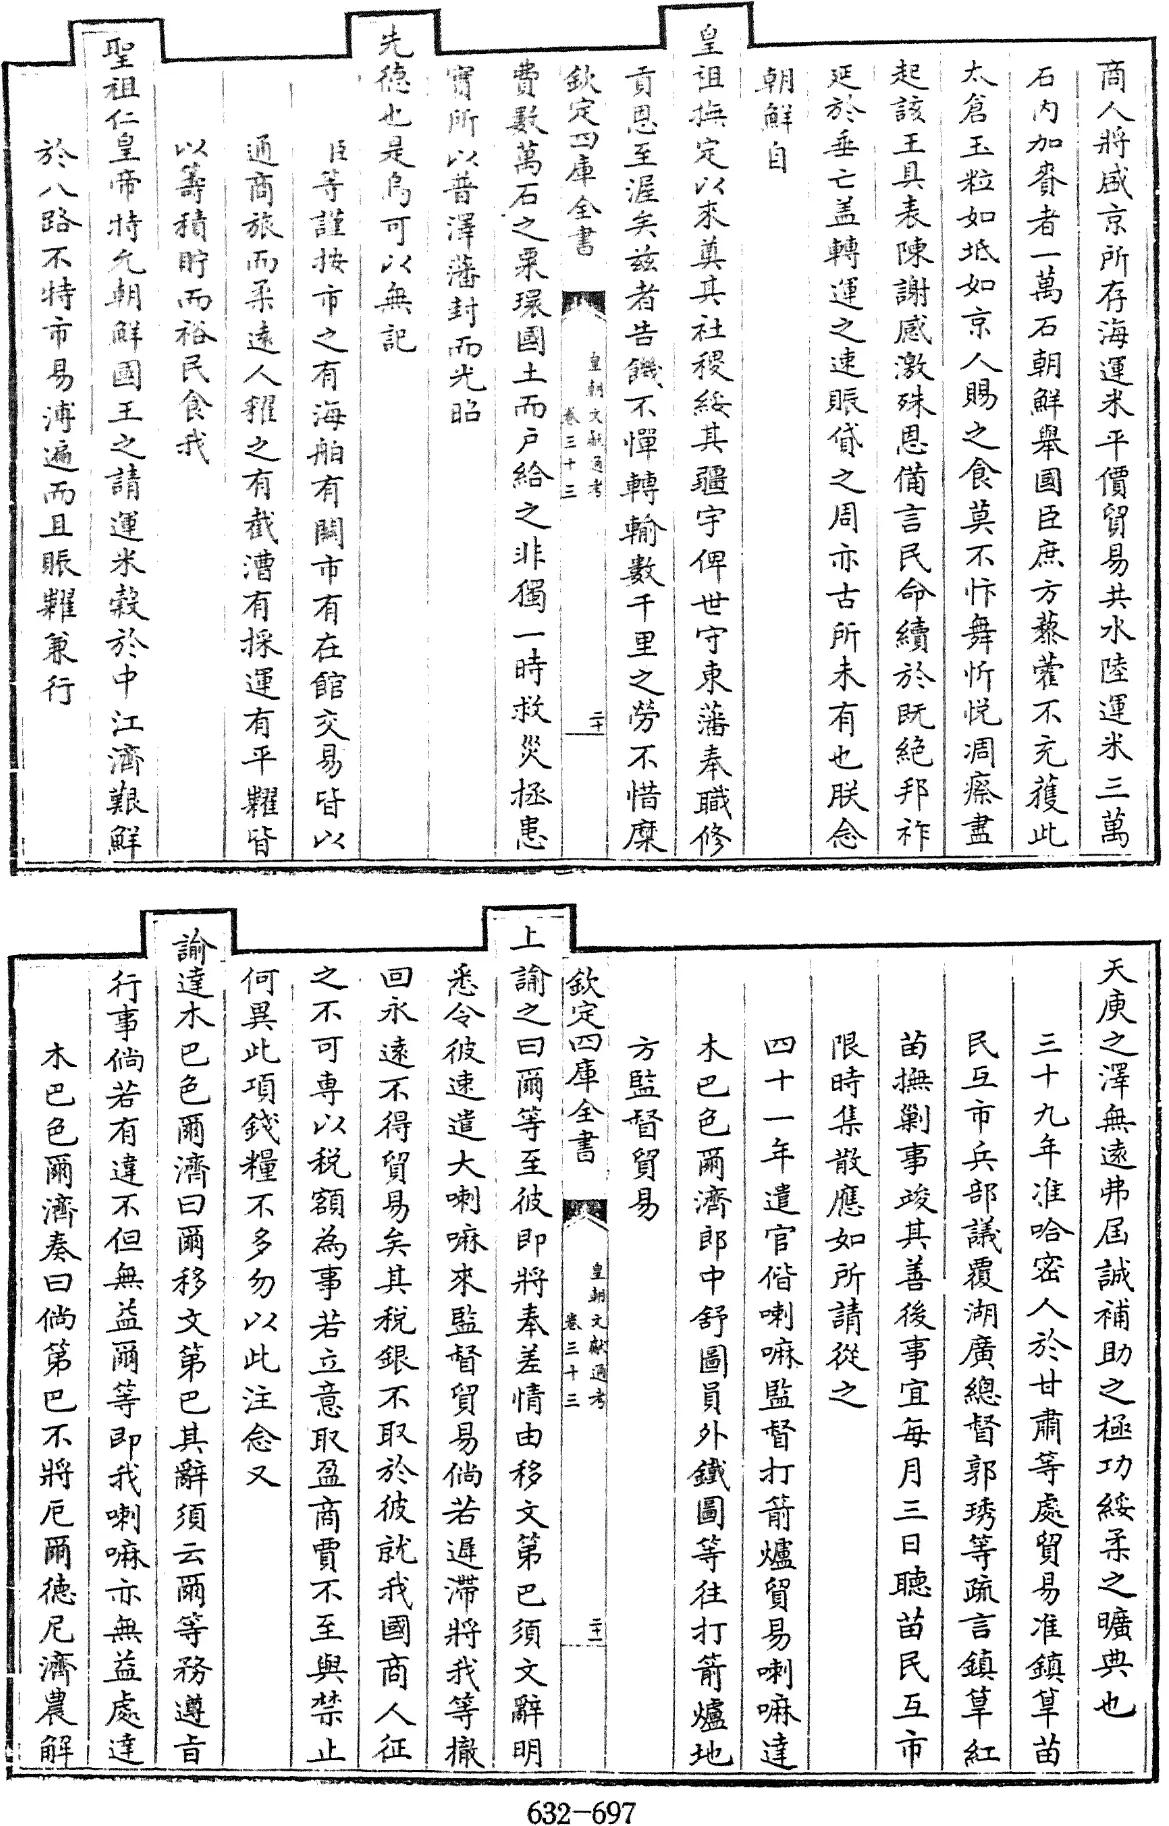 商人將盛京所存海運米平價貿易共水陸運米三萬
石内加賚者一萬石朝鮮舉國臣庶方藜藿不充獲此
太倉玉粒如坻如京人賜之食莫不忭舞忻悦凋瘵盡
起該王具表陳謝感激殊恩備言民命續於既絶邦祚
延於垂亡盖轉運之速賑貸之周亦古所未有也朕念
朝鮮自
皇祖撫定以來奠其社稷綏其疆宇俾世守東藩奉職修
貢恩至渥矣兹者告饑不憚轉輸數千里之勞不惜糜
欽定四庫全書
皇朝文獻通考
卷三十三
二十
費數萬石之粟環國土而户給之非獨一時救災拯患
實所以普澤藩封而光昭
先德也是烏可以無記
臣等謹按市之有海舶有關市有在館交易皆以
通商旅而柔遠人糴之有截漕有採運有平糶皆
以籌積貯而裕民食我
聖祖仁皇帝特允朝鮮國王之請運米穀於中江濟艱鮮
於八路不特市易溥遍而且賑糶兼行
天庾之澤無遠弗屆誠補助之極功綏柔之曠典也
三十九年准哈密人於甘肅等處貿易准鎮筸苗
民互市兵部議覆湖廣總督郭琇等疏言鎮筸紅
苗撫剿事竣其善後事宜每月三日聽苗民互市
限時集散應如所請從之
四十一年遣官偕喇嘛監督打箭爐貿易喇嘛達
木巴色爾濟郎中舒圖員外鐵圖等往打箭爐地
方監督貿易
欽定四庫全書
皇朝文獻通考
卷三十三
二十一
上諭之曰爾等至彼即將奉差情由移文第巴須文辭明
悉令彼速遣大喇嘛來監督貿易倘若遲滯將我等撤
回永遠不得貿易矣其税銀不取於彼就我國商人征
之不可專以税額為事若立意取盈商賈不至與禁止
何異此項錢糧不多勿以此注念又
諭達木巴色爾濟曰爾移文第巴其辭須云爾等務遵旨
行事倘若有違不但無益爾等即我喇嘛亦無益處達
木巴色爾濟奏曰倘第巴不將厄爾德尼濟農解
632-697